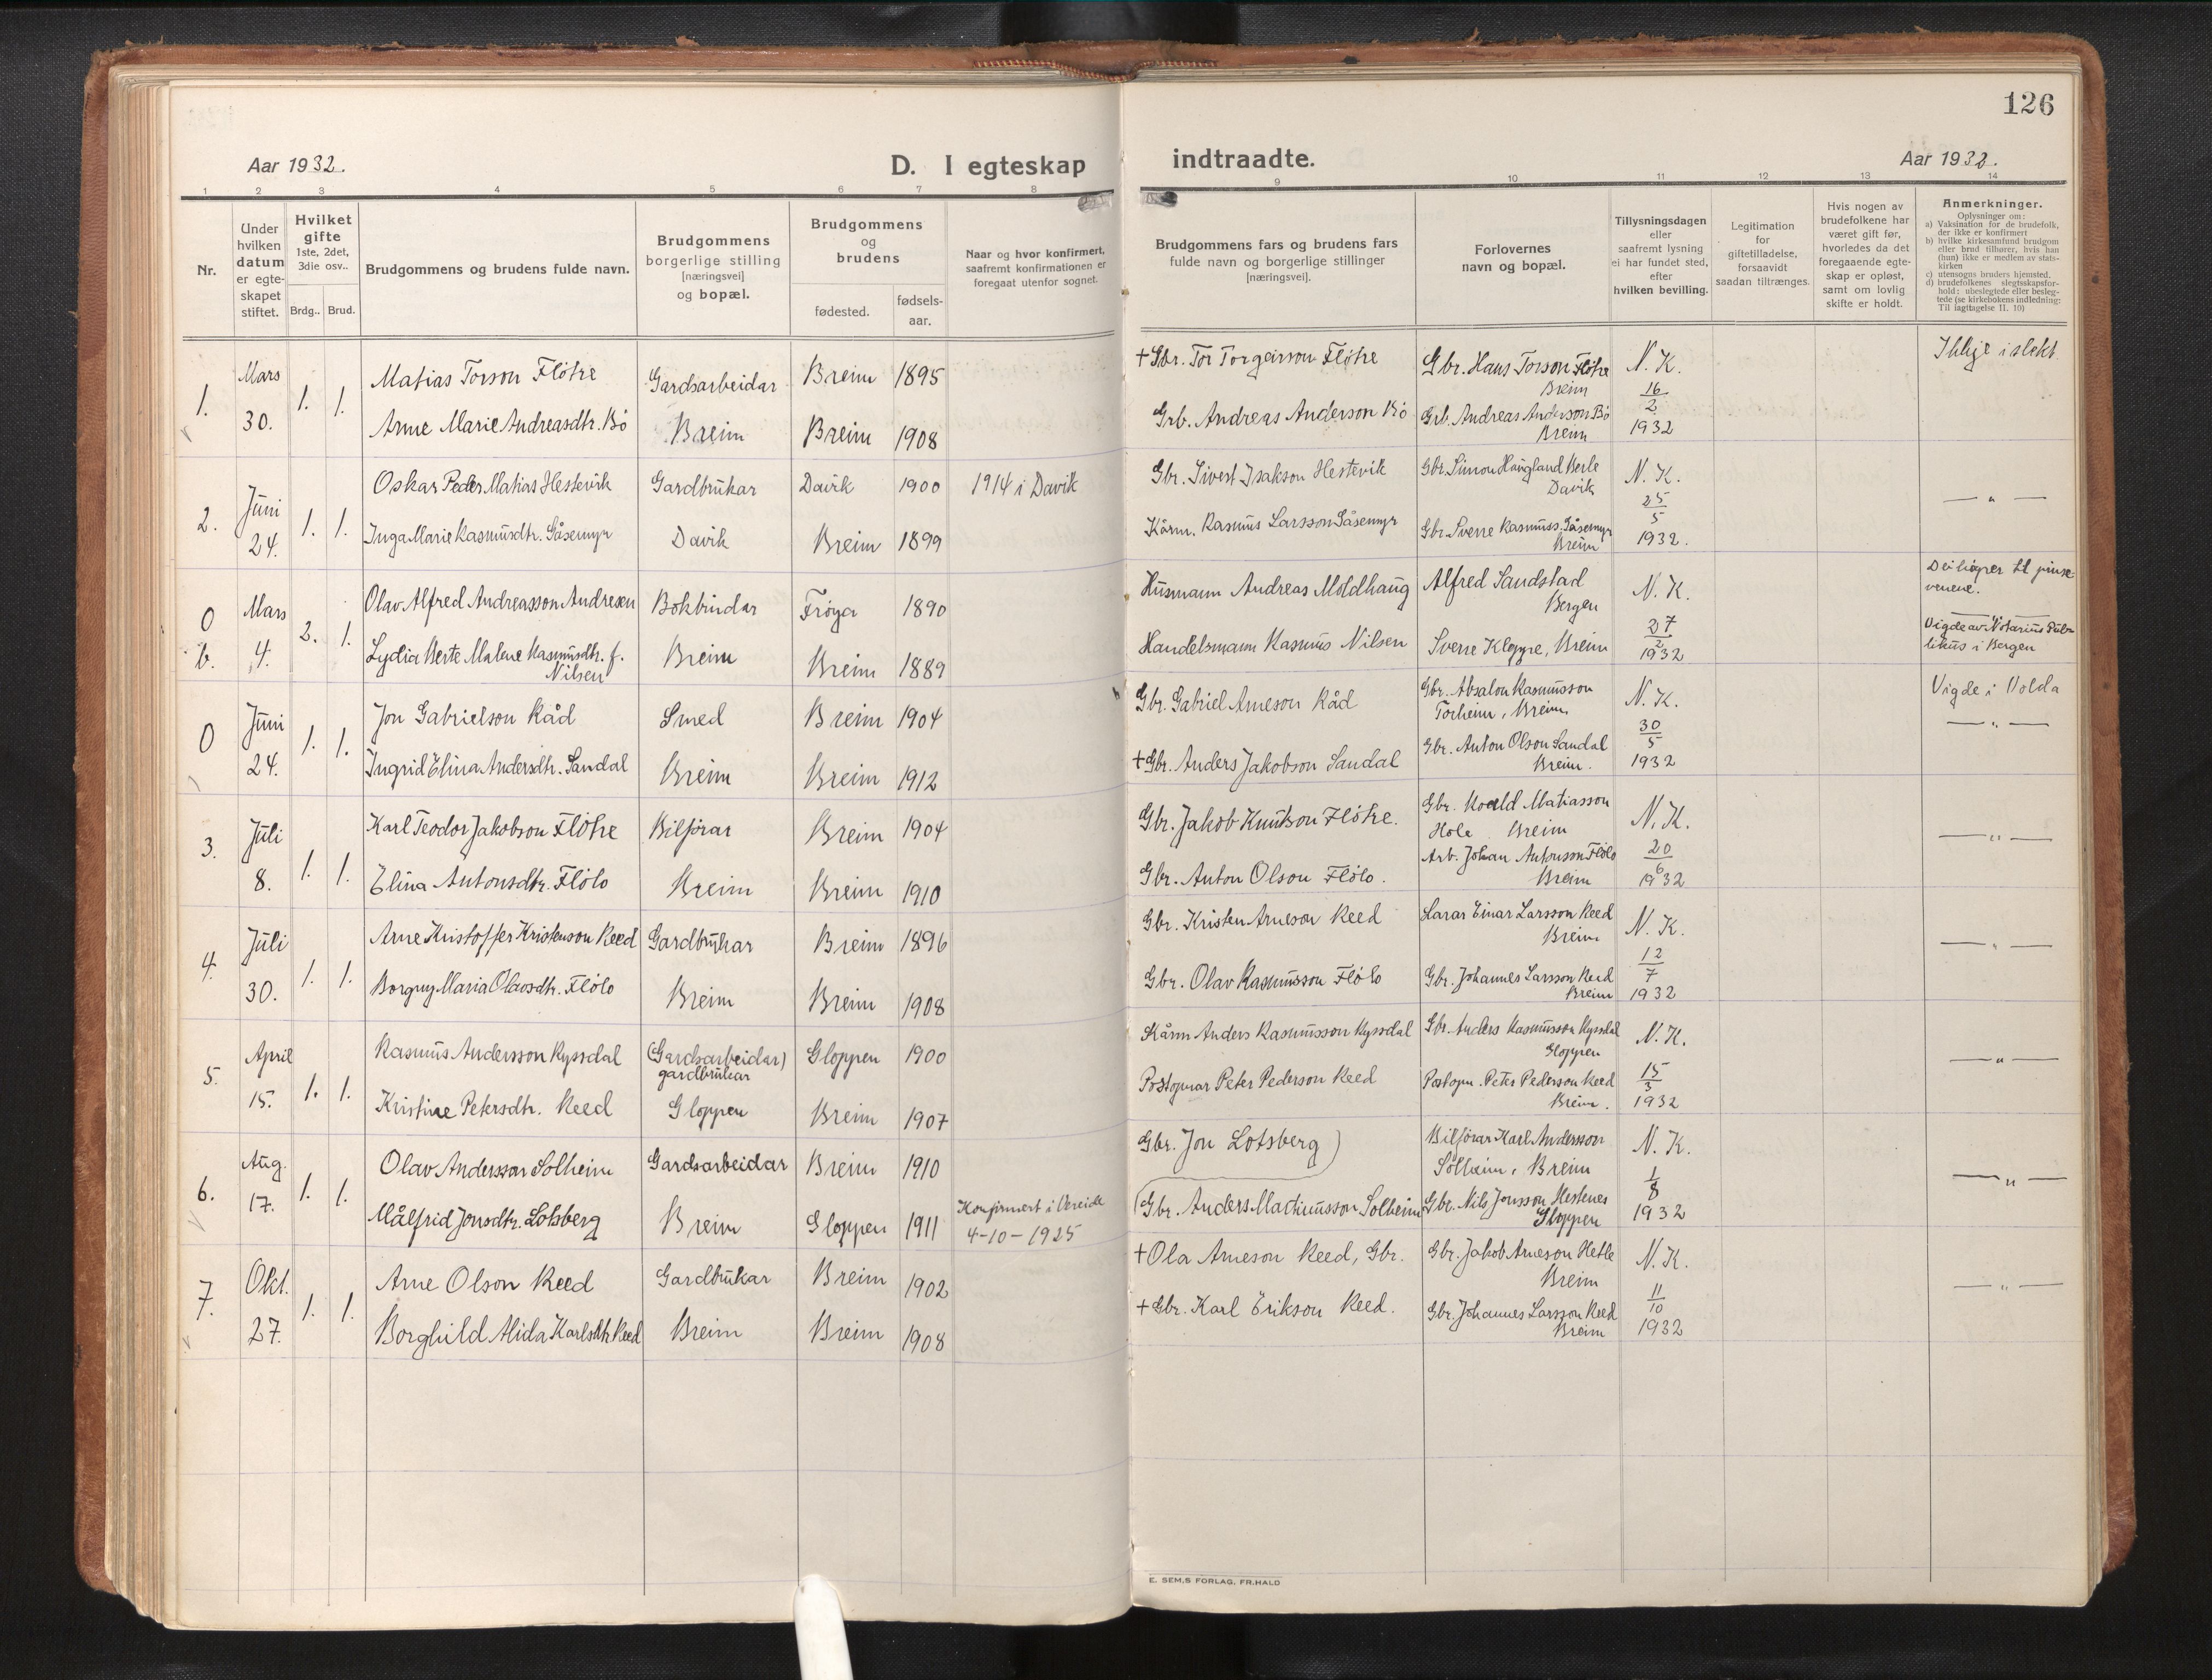 126
Aar 1932.
D. I egteskap indtraadte.
Aar 1932.
1 2 3 4 5 6 7 8 9 10 11 12 13 14
Nr.
Under
hvilken
datum
er egte-
skapet
stiftet.
Hvilket
gifte
1ste, 2det,
3die osv..
Brdg.. Brud.
Brudgommens og brudens fulde navn.
Brudgommens
borgerlige stilling
[næringsvei]
og bopæl.
Brudgommens
og
brudens
fødested.
fødsels-
aar.
Naar og hvor konfirmert,
saafremt konfirmationen er
foregaat utenfor sognet.
Brudgommens fars og brudens fars
fulde navn og borgerlige stillinger
[næringsvei].
Forlovernes
navn og bopæl.
Tillysningsdagen
eller
saafremt lysning
ei har fundet sted,
efter
hvilken bevilling.
Legitimation
for
giftetilladelse,
forsaavidt
saadan tiltrænges.
Hvis nogen av
brudefolkene har
været gift før,
hvorledes da det
foregaaende egte-
skap er opløst,
samt om lovlig
skifte er holdt.
Anmerkninger.
Oplysninger om:
a) Vaksination for de brudefolk,
der ikke er konfirmert
b) hvilke kirkesamfund brudgom
eller brud tilhører, hvis han
(hun) ikke er medlem av stats-
kirken
c) utensogns bruders hjemsted.
d) brudefolkenes slegtsskapsfor-
hold: ubeslegtede eller besleg-
tede (se kirkebokens indledning:
Til iagttagelse II. 10)
1. Mars 30. 1. 1.
Matias Torson Fløtre Gardsarbeidar Breim 1895
Anne Marie Andreasdtr. Bö Breim Breim 1908
+ Gbr. Tor Torgeirson Fløtre
Grb. Andreas Anderson Bö
Gbr. Hans Torson Fløtre
Breim
Grb. Andreas Anderson Bö
Breim
N. K.
16
2
1932
Ikkje i slekt.
2. Juni 24. 1. 1.
Oskar Peder Matias Hestevik Gardbrukar Davik 1900 1914 i Davik
Inga Marie Rasmusdtr. Gåsemyr Davik Breim 1899
Gbr. Sivert Isakson Hestevik
Kårm. Rasmus Larsson Gåsemyr
Gbr. Simon Haugland Berle
Davik
Gbr. Sverre Rasmuss. Gåsemyr
Breim
N. K.
25
5
1932.
— " —
0 b. Mars 4. 2. 1.
Olav Alfred Andreasson Andresen Bokbindar Frøya 1890
Lydia Berte Malene Rasmusdtr. f.
Nilsen Breim Breim 1889
Husmann Andreas Moldhaug
Handelsmann Rasmus Nilsen
Alfred Sandstad
Bergen
Sverre Kleppe, Breim
N. K.
27
2
1932
Dei høyrer til pinse-
venene.
Vigde av Notarius Pub-
likus i Bergen
0 Juni 24. 1. 1.
Jon Gabrielson Råd Smed Breim 1904
Ingrid Elina Andersdtr. Sandal Breim Breim 1912
Gbr. Gabriel Arneson Råd
+ Gbr. Anders Jakobson Sandal
Gbr. Absalon Rasmusson
Torheim, Breim
Gbr. Anton Olson Sandal
Breim.
N. K.
30
5
1932
Vigde i Volda
— " —
3. Juli 8. 1. 1.
Karl Teodor Jakobson Fløtre Bilførar Breim 1904
Elina Antonsdtr. Flölo Breim Breim 1910
Gbr. Jakob Knutson Fløtre.
Gbr. Anton Olson Flölo.
Gbr. Matiasson
Hole Breim
Arb. Johan Antonsson Flölo
Breim
N. K.
20
6
1932
— " —
4. Juli 30. 1. 1.
Arne Kristoffer Kristenson Reed Gardbrukar Breim 1896
Borgny Maria Olavsdtr. Flölo Breim Breim 1908
Gbr. Kristen Arneson Reed
Gbr. Olav Rasmusson Flölo
Lærar Einar Larsson Reed
Breim
Gbr. Johannes Larsson Reed
Breim
N. K.
12
7
1932
— " —
5. April 15. 1. 1.
Rasmus Andersson Ryssdal (Gardsarbeidar) Gloppen 1900
gardbrukar
Kristine Petersdtr. Reed Gloppen Breim 1907
Kårm Anders Rasmusson Ryssdal
Postopnar Peter Pederson Reed
Gbr. Anders Rasmusson Ryssdal
Gloppen
Postopn. Peter Pederson Reed
Breim.
N. K.
15
3
1932
— " —
6. Aug. 17. 1. 1.
Olav Andersson Solheim Gardsarbeidar Breim 1910
Målfrid Jonsdtr. Lotsberg Breim Gloppen 1911
Konfirmert i Vereide
4-10-1925
Gbr. Jon Lotsberg)
(Gbr. Anders Martinusson Solheim
Bilførar Karl Andersson
Solheim, Breim
Gbr. Nils Jonsson Hestenes
Gloppen
N. K.
1
8
1932
— " —
7. Okt. 27. 1. 1.
Arne Olson Reed Gardbrukar Breim 1902
Borghild Alida Karlsdtr. Reed Breim Breim 1908
+ Ola Arneson Reed, Gbr.
+ Gbr. Karl Erikson Reed.
Gbr. Jakob Arneson Hetle
Breim
Gbr. Johannes Larsson Reed
Breim
N. K.
11
10
1932
— " —
E. SEM,S FORLAG, FR.HALD